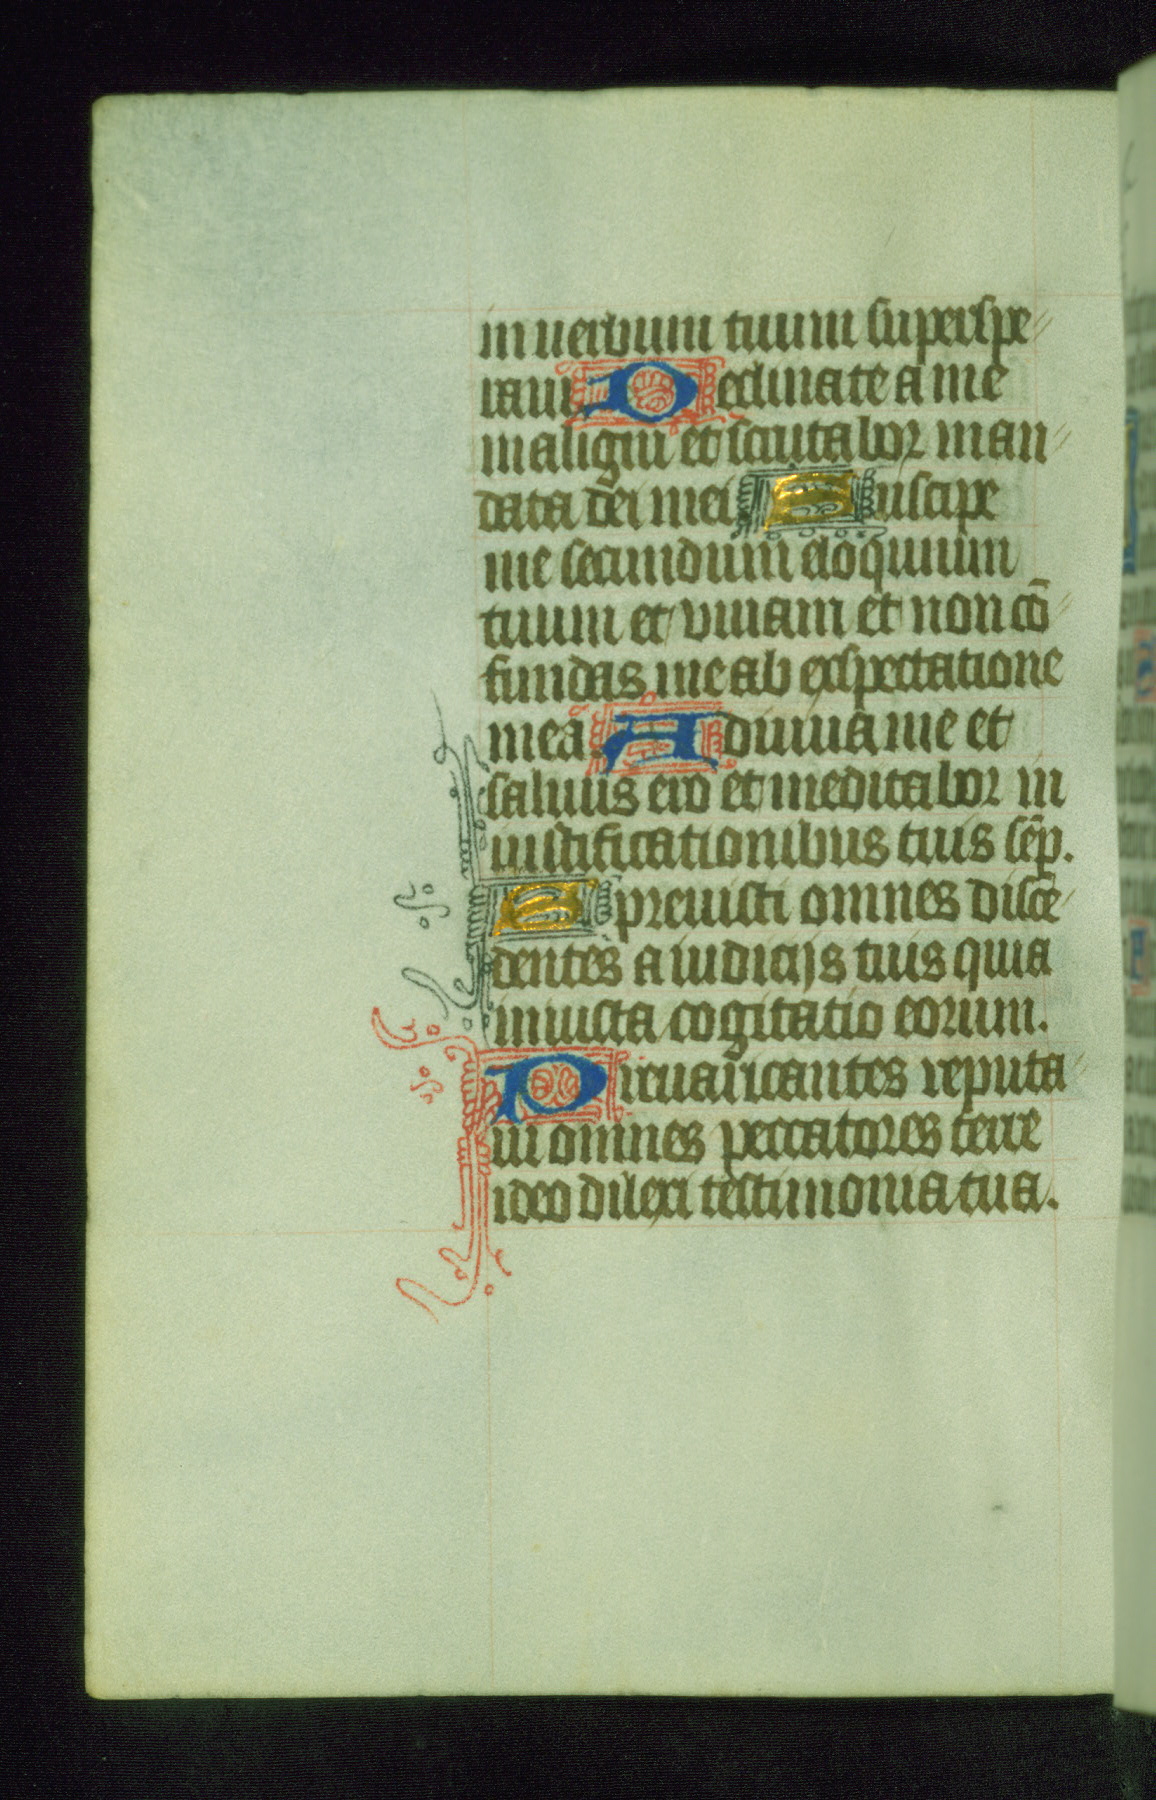 in uerbum tuum superspe
raui Declinate a me
maligni et scrutabor man
data dei mei Suscipe
me secundum eloquium
tuum et viuam et non cō
fundas me ab exspectatione
mea. Adiuua me et
saluus ero et meditabor in
iustificationibus tuis sēp.
Spreuisti omnes disce
dentes a iudicijs tuis quia
iniusta cogitatio eorum.
Preuaricantes reputa
ui omnes peccatores terre
ideo dilexi testimonia tua.